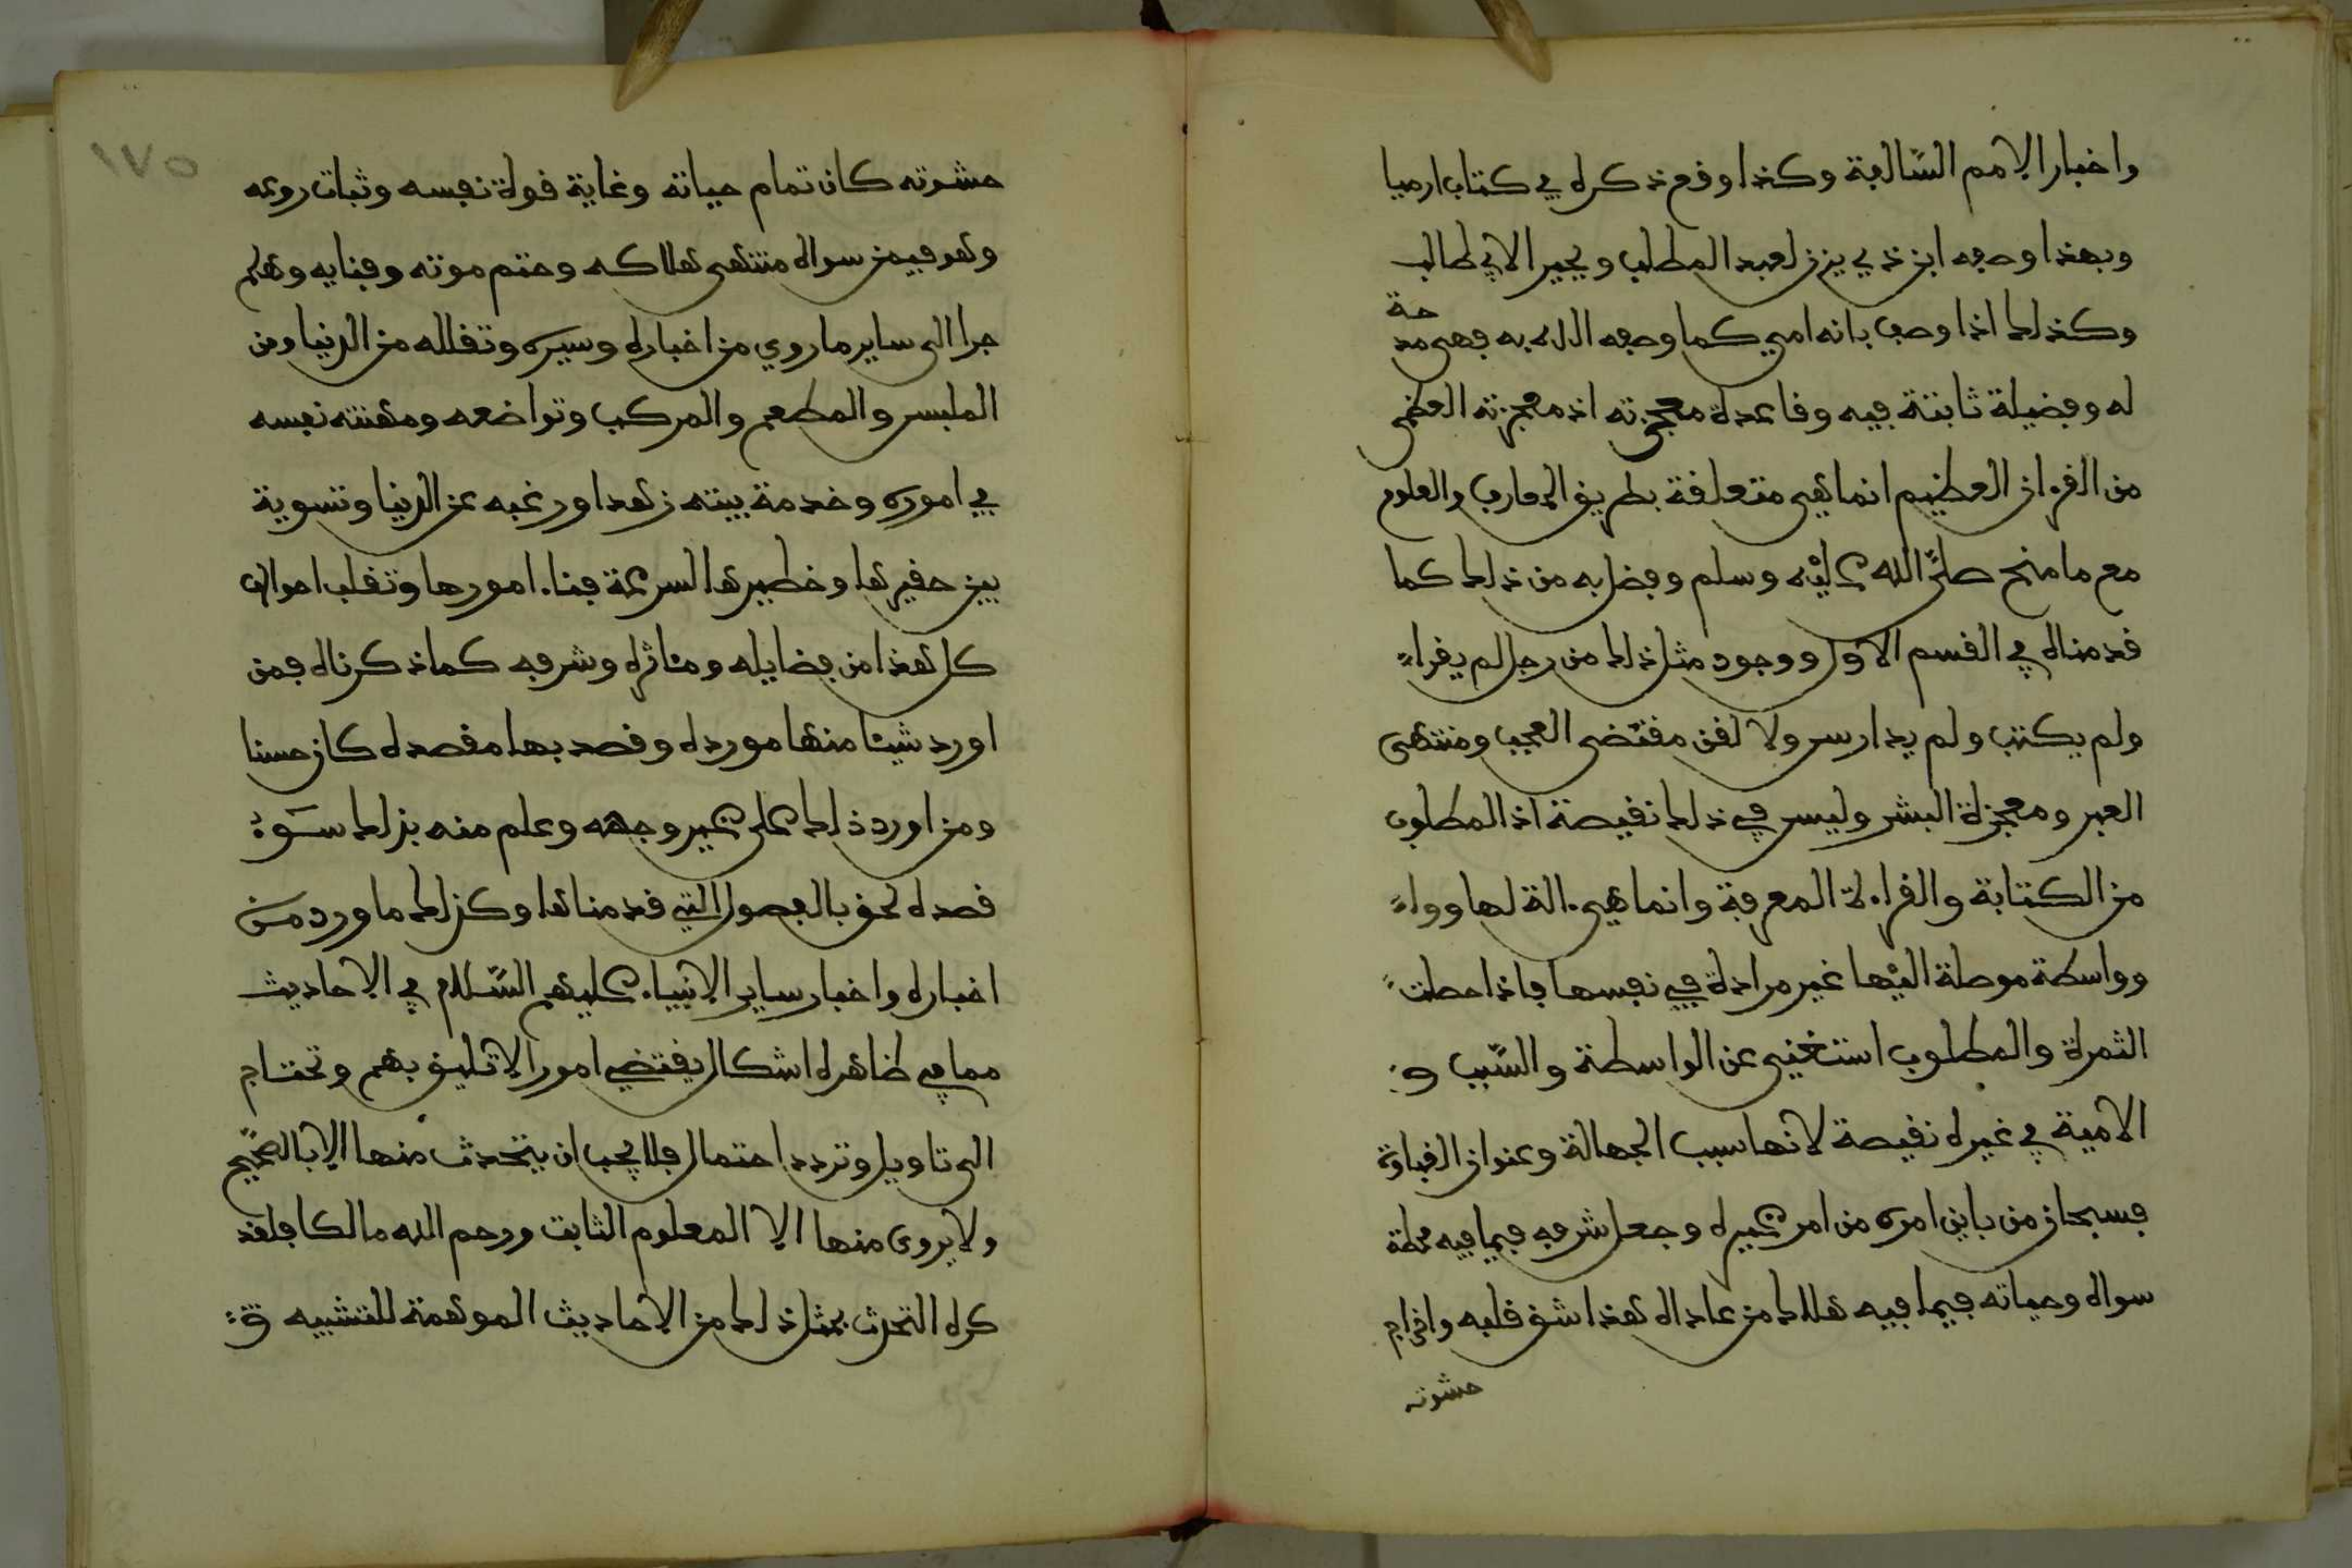 واخبار الامم السّالفة وكذا وقع ذكره في كتاب ارميا
وبهذا وصفه ابن ذي يزن لعبد المطلب وبحيرا لابي طالب
وكذلك اذا وصف بانه امي كما وصفه الله به فهي مدحة
له وفضيلة ثابتة فيه وقاعدة معجزته اذ معجزته العظمى
من القرءان العظيم انما هي متعلقة بطريق المعارف والعلوم
مع ما منح صلّى الله عليه وسلم وفضل به من ذلك كما
قدمناه في القسم الاول ووجود مثل ذلك من رجل لم يقراء
ولم يكتب ولم يدارس ولا لقن مقتضى العجب ومنتهى
العبر ومعجزة البشر وليس في ذلك نقيصة اذ المطلوب
من الكتابة والقراءة المعرفة وانما هي ءالة لها وواء
وواسطة موصلة اليها غير مرادة في نفسها فاذا حصلت
الثمرة والمطلوب استغنى عن الواسطة والسّبب و
الامية في غيره نقيصة لانها سبب الجهالة وعنوان الغباوة
فسبحان من باين امره من امر غيره وجعل شرفه فيما فيه محطة
سواه وحياته فيما فيه هلاك من عاداه هذا شق قلبه واخراج
حشوته
١٧٥
حشوته كان تمام حياته وغاية قوة نفسه وثبات روعه
وهو فيمن سواه منتهى هلاكه وحتم موته وفنايه وهلم
جرا الى ساير ما روي من اخباره وسيره وتقلله من الدنيا ومن
الملبس والمطعم والمركب وتواضعه ومهنته نفسه
في اموره وخدمة بيته زهدا ورغبه عن الدنيا وتسوية
بين حقيرها وخطيرها لسرعة فناء امورها وتقلب احوالها
كل هذا من فضايله ومئاثره وشرفه كما ذكرناه فمن
اورد شيئا منها مورده وقصد بها مقصده كان حسنا
ومن اورد ذلك على غير وجهه وعلم منه بذلك سوء
قصده لحق بالفصول التي قدمناها وكذلك ما ورد من
اخباره واخبار ساير الانبياء عليهم السّلام في الاحاديث
مما في ظاهره اشكال يقتضي امورا لا تليق بهم وتحتاج
الى تاويل وتردد احتمال فلا يجب ان يتحدث منها الا بالصّحيح
ولا يروى منها الا المعلوم الثابت ورحم الله مالكا فلقد
كره التحدث بمثل ذلك من الاحاديث الموهمة للتشبيه و